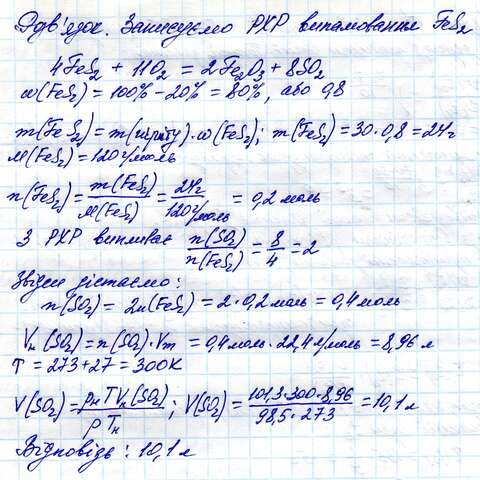 Розв'язок. Записуємо РХР випалювання FeS₂
4FeS₂ + 11O₂ = 2Fe₂O₃ + 8SO₂
ω(FeS₂) = 100% - 20% = 80%, або 0,8
m(FeS₂) = m(піриту) · ω(FeS₂); m(FeS₂) = 30 · 0,8 = 24г
M(FeS₂) = 120 г/моль
n(FeS₂) = m(FeS₂)/M(FeS₂) = 24г/120 г/моль = 0,2 моль
З РХР випливає n(SO₂)/n(FeS₂) = 8/4 = 2
Звідси дістаємо:
n(SO₂) = 2n(FeS₂) = 2 · 0,2 моль = 0,4 моль
Vн(SO₂) = n(SO₂) · Vm = 0,4 моль · 22,4 л/моль = 8,96 л
T = 273 + 27 = 300K
V(SO₂) = pнTVн(SO₂)/pTн; V(SO₂) = 101,3·300·8,96/98,5·273 = 10,1 л
Відповідь: 10,1 л